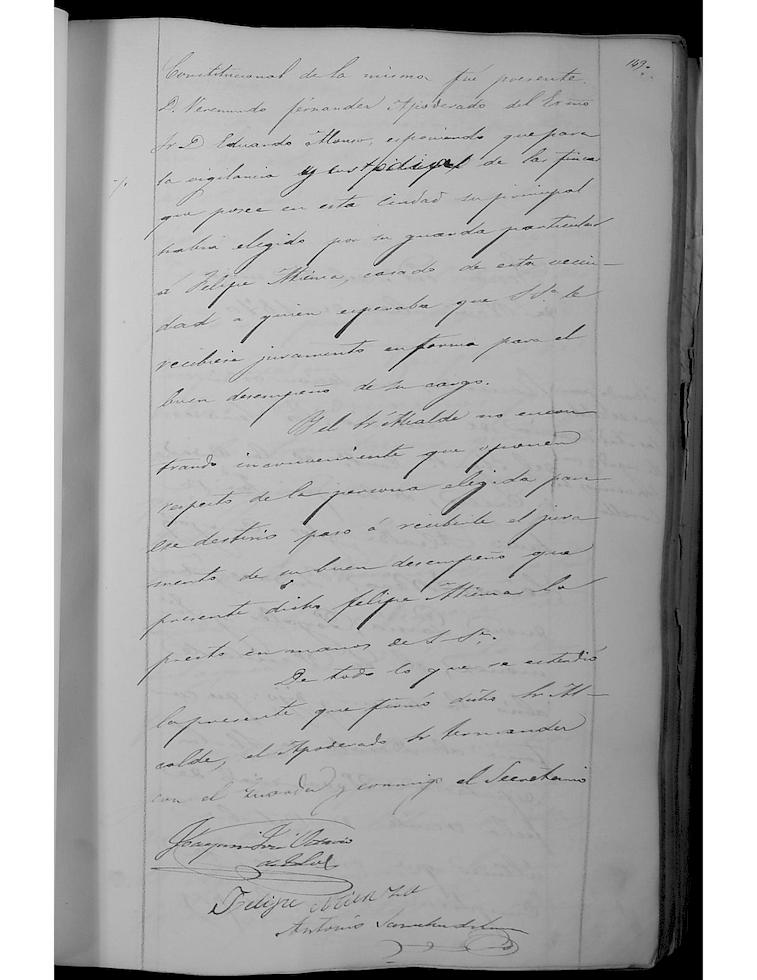 149
Constitucional de la misma fué presente
D. Veremundo fernandez Apoderado del Exmo
Sr D. Eduardo Alonso, esponiendo que para
la vigilancia y custodia de la finca
que posee en esta Ciudad su principal
habia elegido por su guarda particular
á Felipe Atienza, casado de esta vecin-
dad a quien esperaba que S. Sª le
recibiese juramento en forma para el
buen desempeño de su cargo.
Y el Sr Alcalde no encon
trando inconveniente que oponer
respecto de la persona elegida para
ese destino paso á recibirle el jura
mento de su buen desempeño que
presente dicho felipe Atienza lo
prestó en manos de S. Sª.
De todo lo que se estendió
la presente que firmó dicho Sr Al-
calde, el Apoderado Sr hernandez
con el Guarda y conmigo el Secretario
Joaquin
Felipe Atienza
Antonio